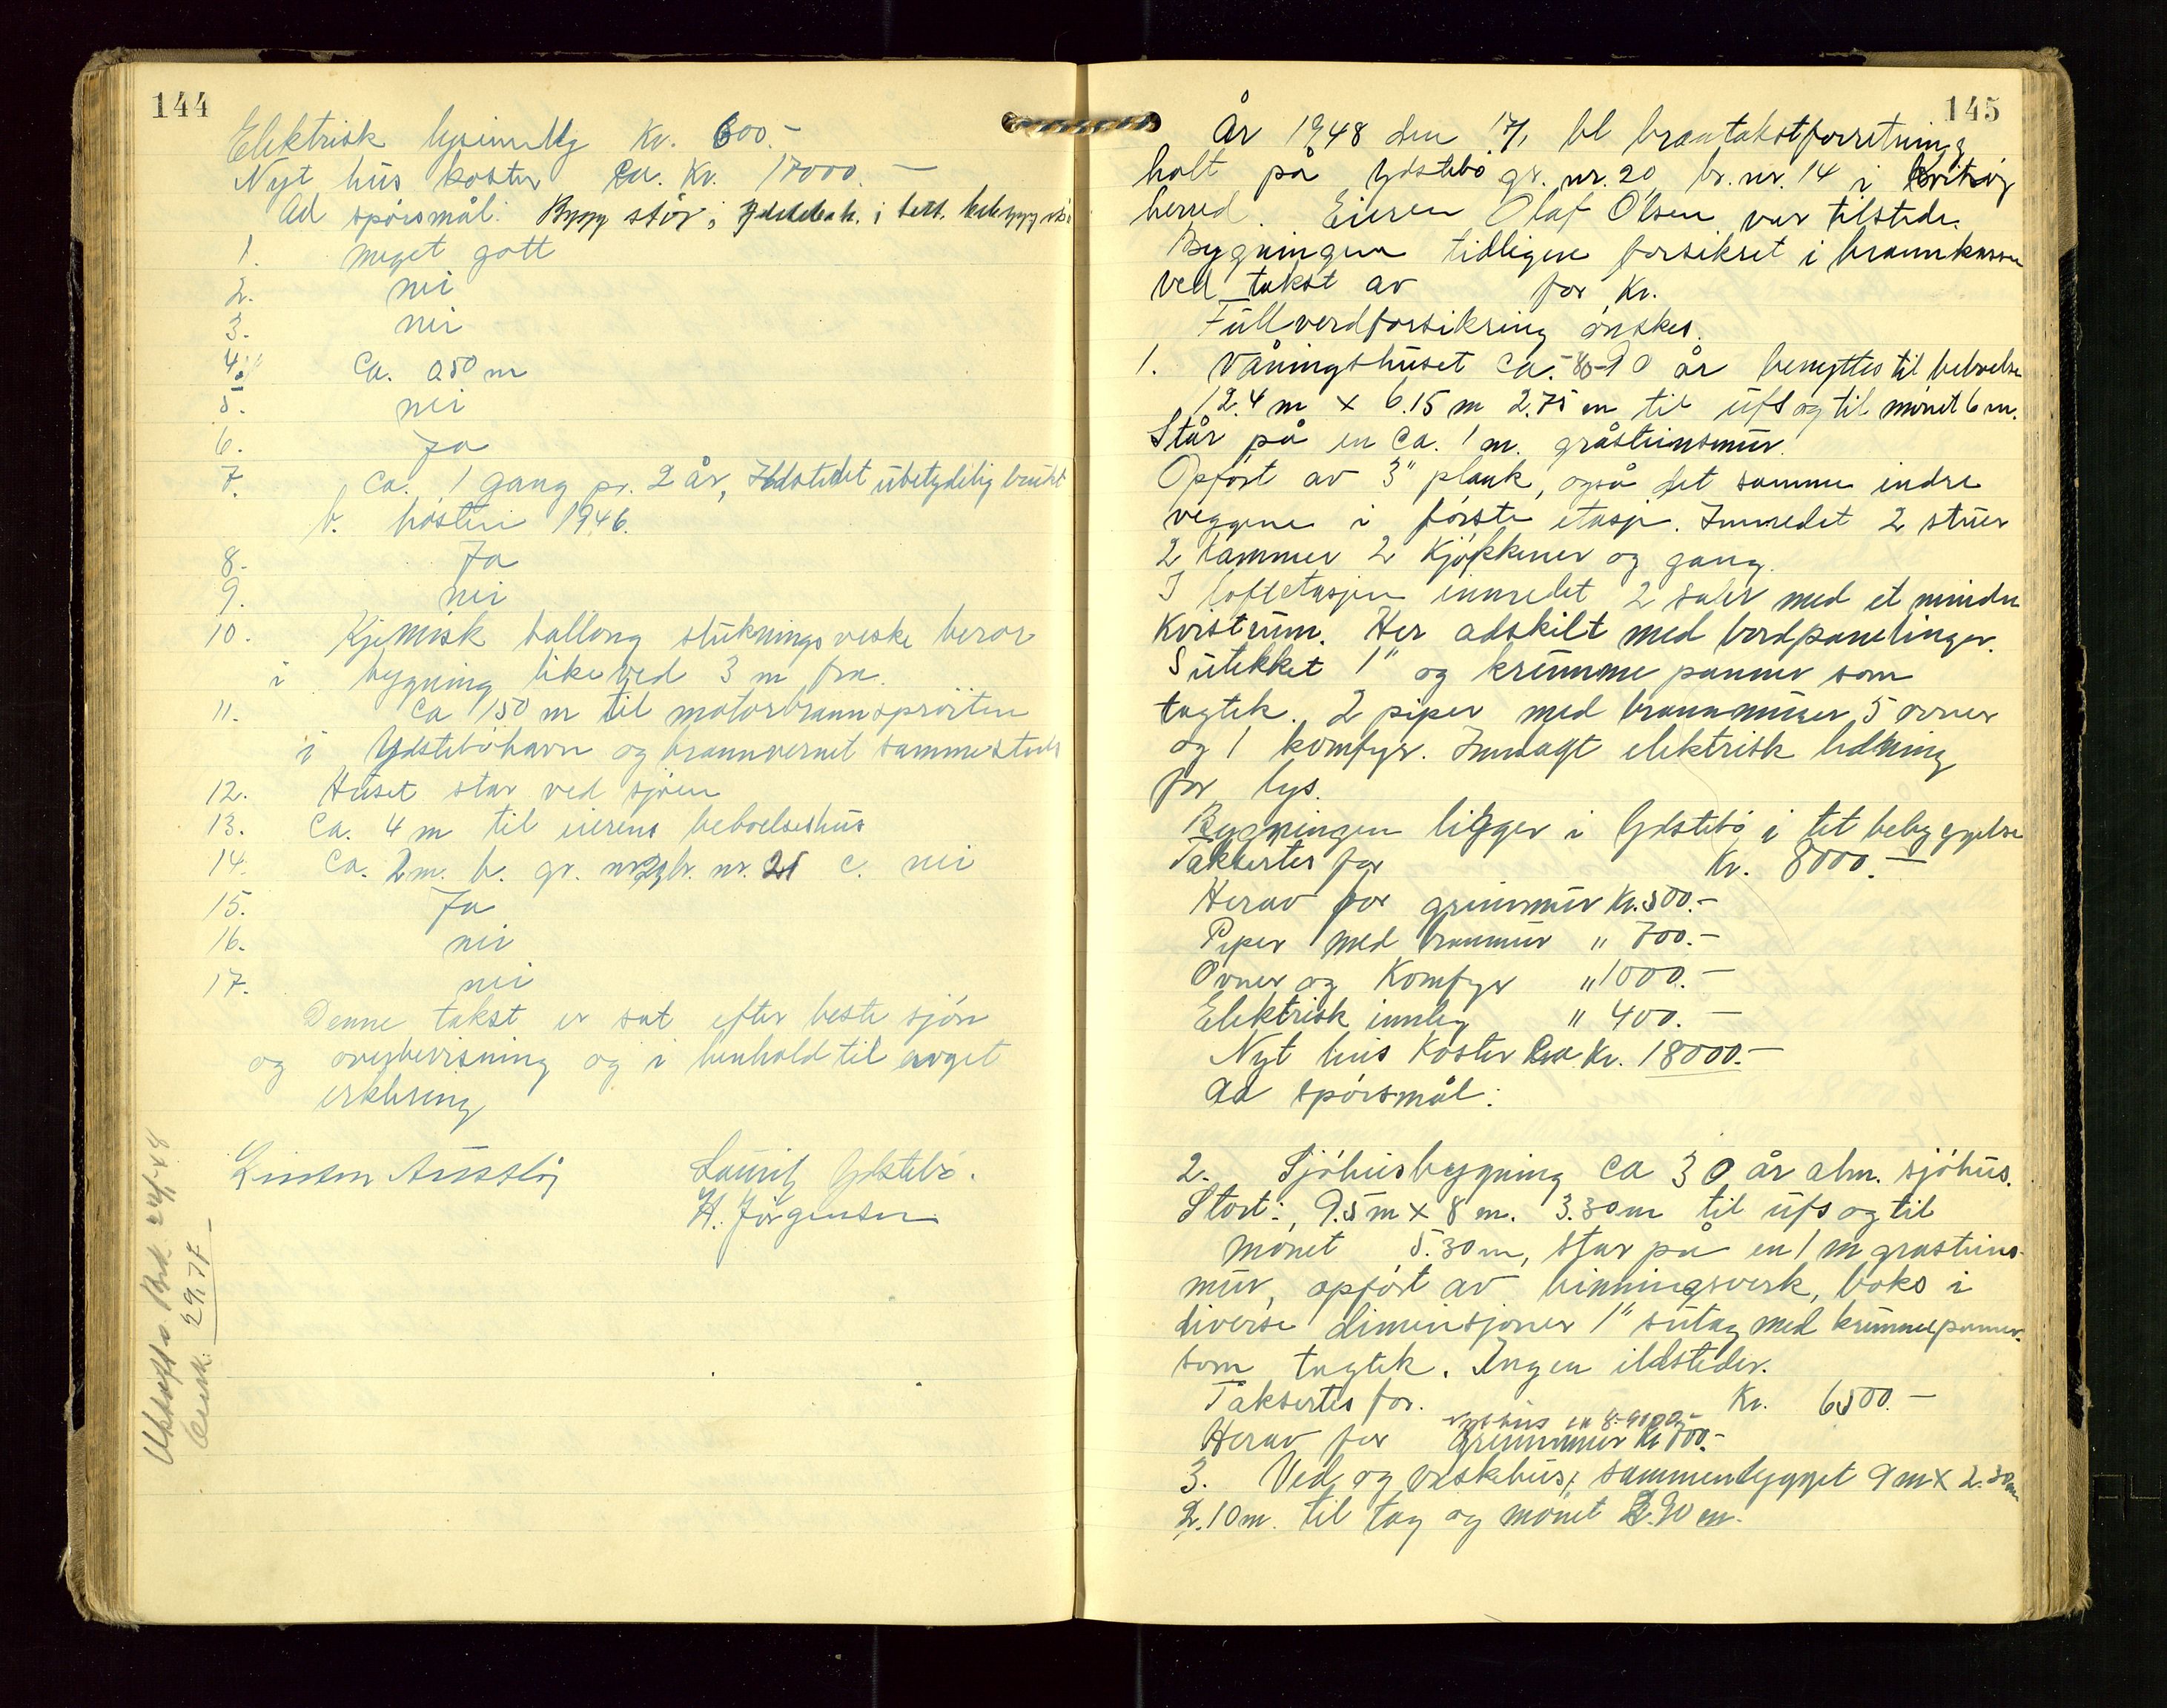 144
Elektrisk lysinnlegg Kr. 600.-
Nyt hus koster ca. Kr. 17000.-
Ad spørsmål: Bygg står i i tett
1. meget gott
2. nei
3. nei
4. Ca. 0.50 m
5. nei
6. Ja
7. Ca. 1 gang pr. 2 år, Ildstedet ubetydelig brukt
b. høsten 1946.
8. Ja
9. nei
10. Kjemisk ballong sluknings veske beror
i bygning like ved 3 m fra.
11. Ca 150 m til motorbrannsprøiten
i Ydstebøhavn og brannvernet sammesteds
12. Huset står ved sjøen
13. Ca. 4 m til eierens beboelseshus
14. Ca. 2 m. b. gr. nr. 20 br. nr. 21 c. nei
15. Ja
16. nei
17. nei
Denne takst er sat efter beste sjøn
og overbevisning og i henhold til avget
erklæring
Lauritz Ydstebø.
H. Jørgensen
29.77
145
År 1948 den 17/1 bl branntakstforretning
holt på Ydstebø gr. nr. 20 br. nr. 14 i Kvitsøy
herred. Eieren Olaf Olsen var tilstede.
Bygningen tidligere forsikret i brannkassen
ved takst av for Kr.
Fullverdforsikring ønskes.
1. Våningshuset ca. 80-90 år benyttes til beboelse
12.4 m x 6.15 m 2.75 m til ufs og til mønet 6 m.
Står på en ca. 1 m. gråsteinsmur.
Opført av 3" plank, også det samme indre
veggene i første etasje. Innredet 2 stuer
2 kammer 2 kjøkkener og gang.
I loftetasjen innredet 2 saler med et mindre
kvistrum. Her adskilt med bordpanelinger.
Sutekket 1" og krumme panner som
tagtek. 2 piper med brannmurer 5 ovner
og 1 komfyr. Innlagt elektrisk ledning
for lys.
Bygningen ligger i Ydstebø i tet bebyggelse
Taksertes for Kr. 8000.-
Herav for grunnmur Kr. 500.-
Piper med brannmur " 700.-
Ovner og Komfyr " 1000.-
Elektrisk innleg " 400.-
Nyt hus koster ca Kr. 18000.-
Ad spørsmål:
2. Sjøhusbygning ca 30 år alm. sjøhus.
Stort: 9.5 m x 8 m. 3.30 m til ufs og til
mønet 5.30 m, står på en 1 m gråsteins-
mur, opført av binningsverk, boks i
diverse dimensjoner 1" sutag med krumme panner
som tagtek. Ingen ildsteder.
Taksertes for. Kr. 6500.-
nyt hus ca 8-9000.-
Herav for Grunnmur Kr 700.-
3. Ved og vaskehus, sammenbygget 9 m x 2.30 m
2.10 m. til tag og mønet 2.90 m.